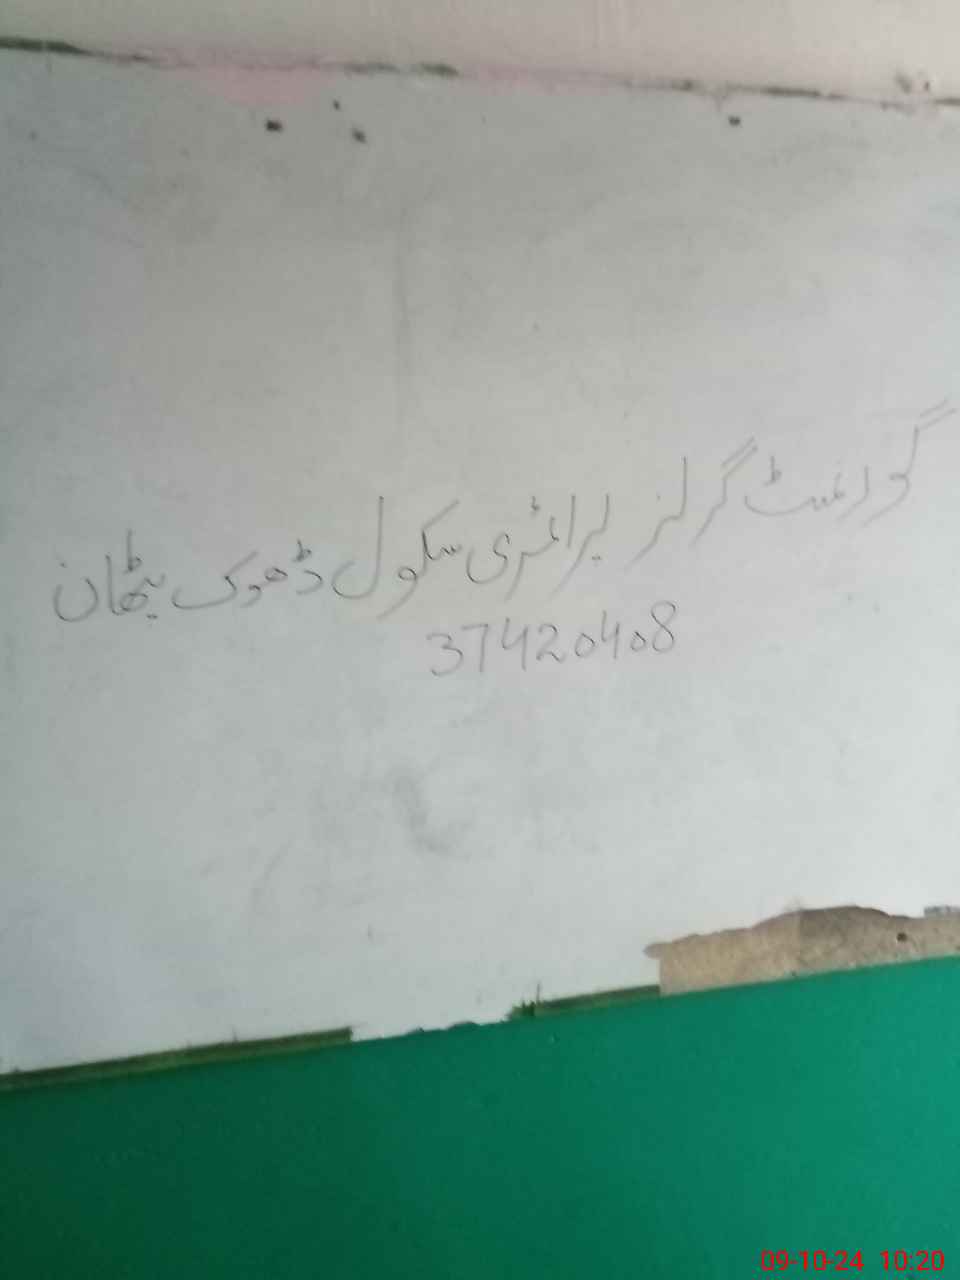 گورنمنٹ گرلز پرائمری سکول ڈھوک پٹھان
37420408
09-10-24 10:20